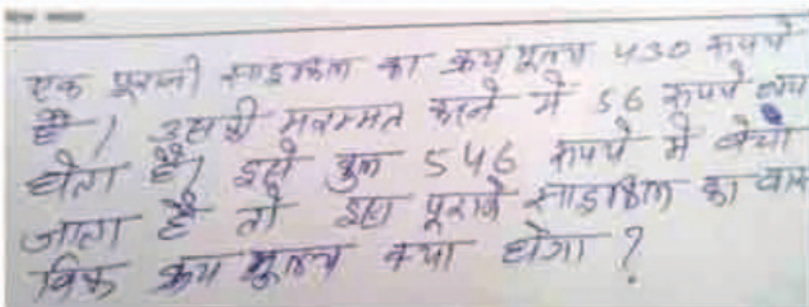 एक पूरानी साइकिल का क्रय मूल्य 430 रूपये
है। उसकी मरम्मत करने में 56 रूपये व्यय
होता है। इसे कुल 546 रूपये में बेचा
जाता है तो इस पूराने साइकिल का वास्
विक क्रय मूल्य क्या होगा ?